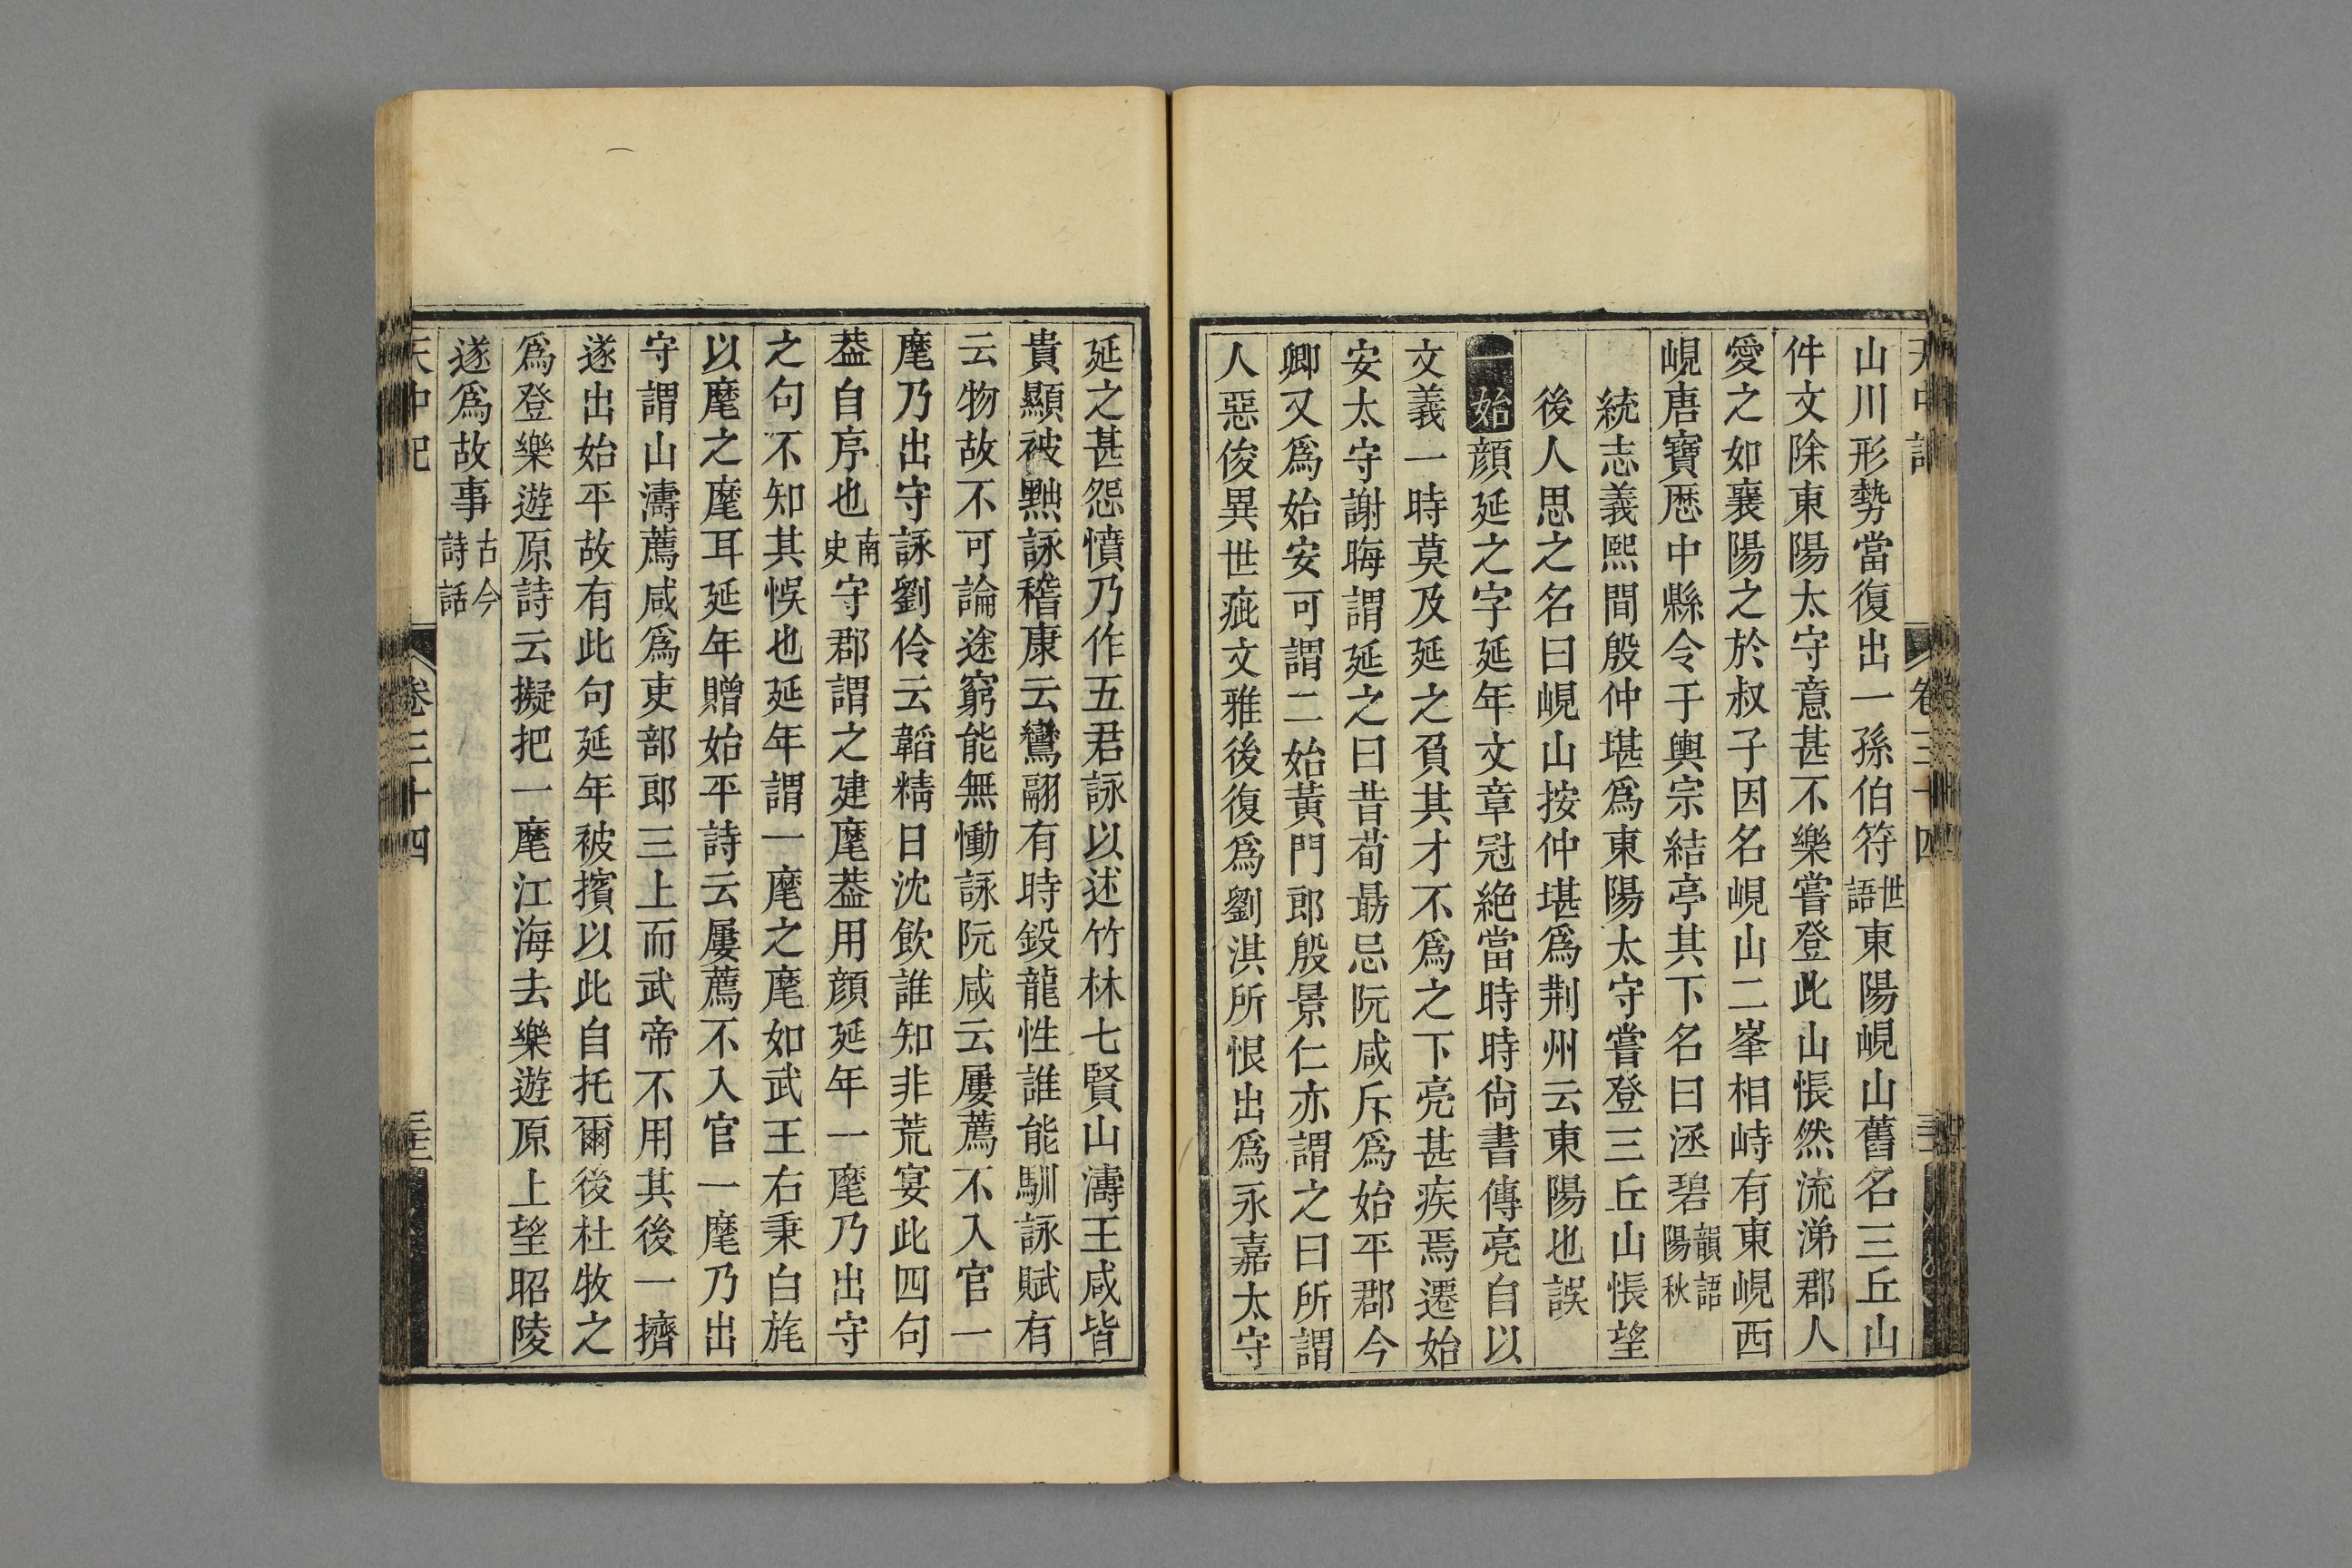 山川形勢當復出一孫伯符世語東陽峴山舊名三丘山
件文除東陽太守意甚不樂嘗登此山悵然流涕郡人
愛之如襄陽之於叔子因名峴山二峯相峙有東峴西
峴唐寶厯中縣令于輿宗結亭其下名曰涵碧韻語陽秋
統志義熙間殷仲堪爲東陽太守嘗登三丘山悵望
後人思之名曰峴山按仲堪爲荆州云東陽也誤
二始顔延之字延年文章冠絶當時時尚書傅亮自以
文義一時莫及延之負其才不爲之下亮甚疾焉遷始
安太守謝晦謂延之曰昔荀勗忌阮咸斥爲始平郡今
卿又爲始安可謂二始黄門郎殷景仁亦謂之曰所謂
人惡俊異世疵文雅後復爲劉湛所恨出爲永嘉太守
延之甚怨憤乃作五君詠以述竹林七賢山濤王咸皆
貴顯被黜詠稽康云鸞翮有時鎩龍性誰能馴詠賦有
云物故不可論途窮能無慟詠阮咸云屢薦不入官一
麾乃出守詠劉伶云韜精日沈飲誰知非荒宴此四句
葢自序也南史守郡謂之建麾葢用顔延年一麾乃出守
之句不知其悞也延年謂一麾之麾如武王右秉白旄
以麾之麾耳延年贈始平詩云屢薦不入官一麾乃出
守謂山濤薦咸爲吏部郎三上而武帝不用其後一擠
遂出始平故有此句延年被擯以此自托爾後杜牧之
爲登樂遊原詩云擬把一麾江海去樂遊原上望昭陵
遂爲故事古今詩話
天中記
卷三十四